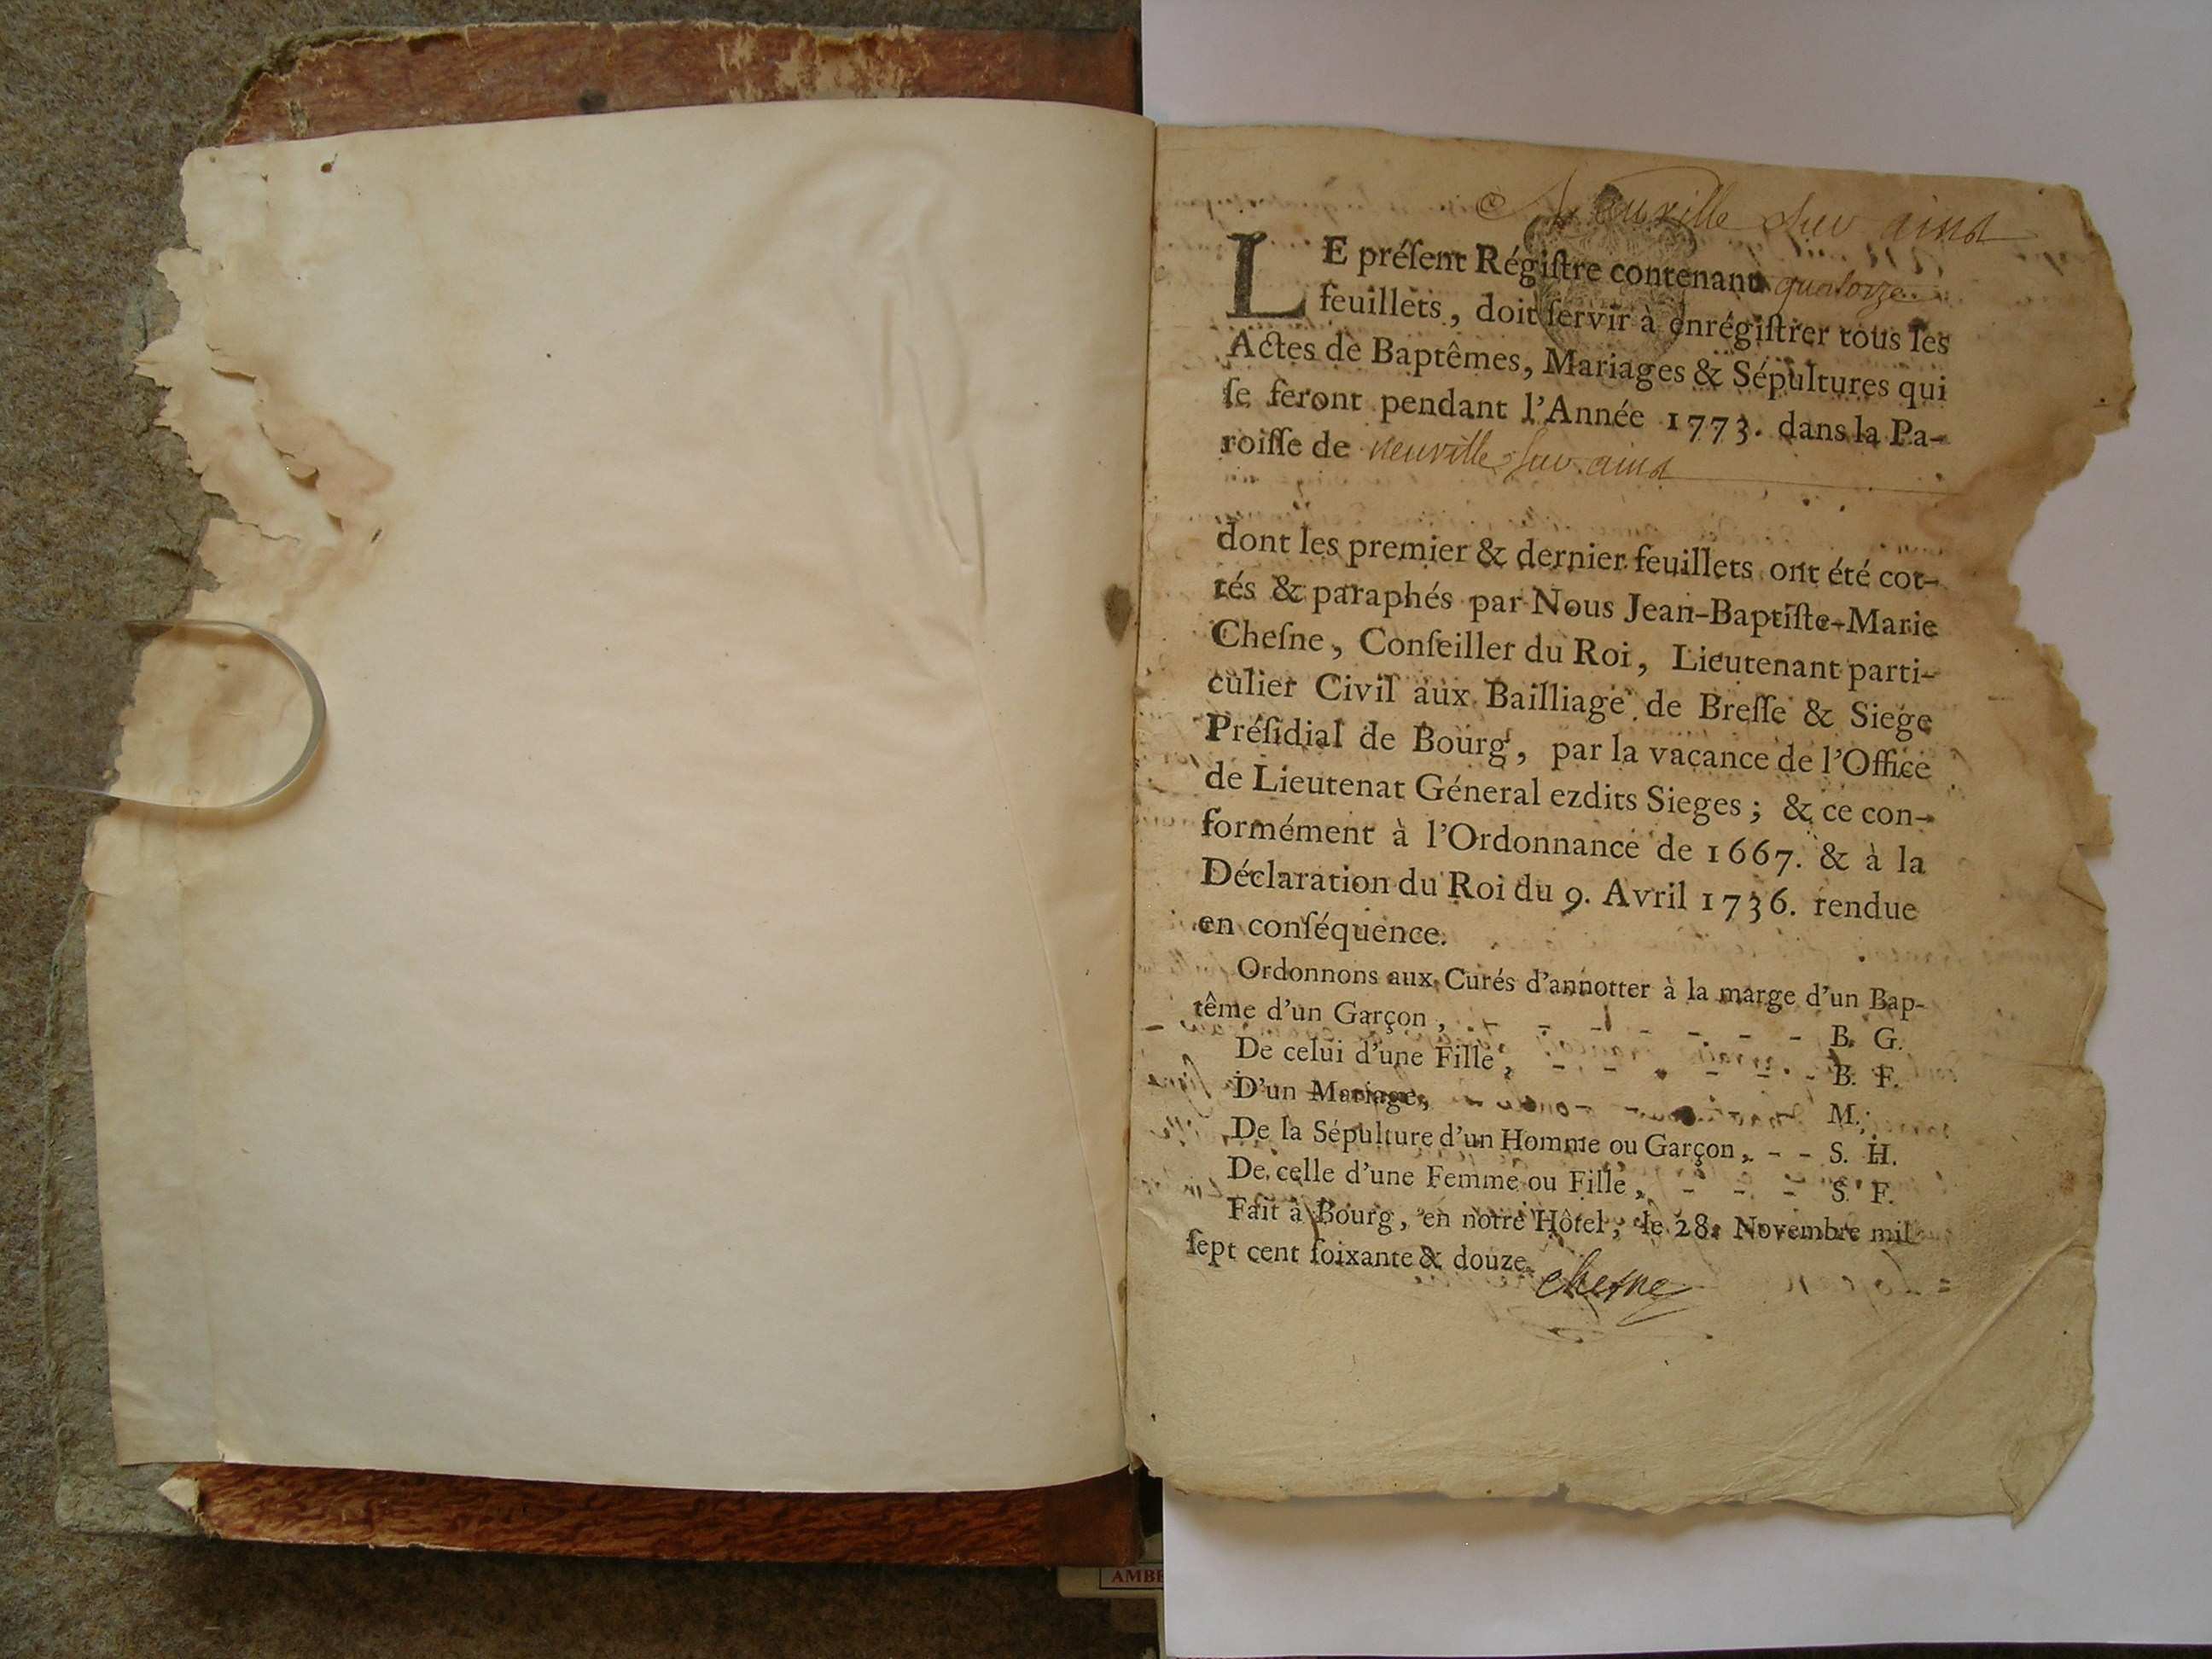 Neuville sur aind
LE préſent Régiſtre contenant quatorze
feuillets, doit ſervir à enrégiſtrer tous les
Actes de Baptêmes, Mariages & Sépultures qui
ſe feront pendant l'Année 1773. dans la Pa-
roiſſe de neuville ſur aind
dont les premier & dernier feuillets ont été cot-
tés & paraphés par Nous Jean-Baptiſte-Marie
Cheſne, Conſeiller du Roi, Lieutenant parti-
culier Civil aux Bailliage de Breſſe & Siege
Préſidial de Bourg, par la vacance de l'Office
de Lieutenat Géneral ezdits Sieges; & ce con-
formément à l'Ordonnance de 1667. & à la
Déclaration du Roi du 9. Avril 1736. rendue
en conſéquence.
Ordonnons aux Curés d'annotter à la marge d'un Bap-
tême d'un Garçon, - - - - - - - B. G.
De celui d'une Fille, - - - - - - B. F.
D'un Mariage, - - - - M.
De la Sépulture d'un Homme ou Garçon, - - S. H.
De celle d'une Femme ou Fille, - - - S. F.
Fait à Bourg, en notre Hôtel, le 28. Novembre mil
ſept cent ſoixante & douze.
chesne
AMBE